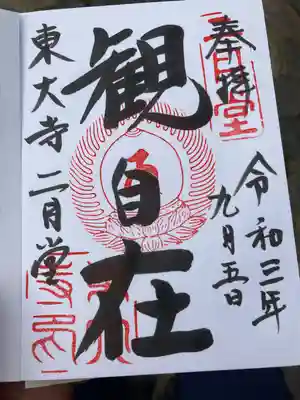 奉拝
二月堂
令和三年
九月五日
観自在
東大寺二月堂